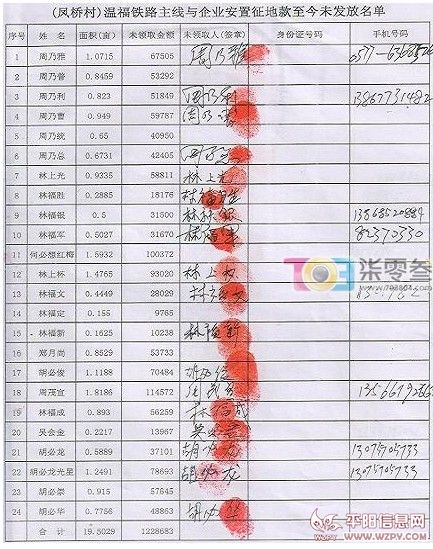 (凤桥村)温福铁路主线与企业安置征地款至今未发放名单
序号 姓名 面积(亩) 未领取金额 未领取人(签章) 身份证号码 手机号码
1 周乃雅 1.0715 67505 周乃雅
2 周乃普 0.8459 53292
3 周乃利 0.823 51849 周乃利 13867731482
4 周乃曹 0.949 59787 周乃曹
5 周乃统 0.65 40950
6 周乃总 0.6731 42405
7 林上光 0.9335 58811 林上光
8 林福胜 0.2885 18176
9 林福银 0.5 31500 13868520884
10 林福军 0.5027 31670 82370330
11 何必想红梅 1.5932 100372
12 林上标 1.4765 93020
13 林福文 0.4449 28029
14 林福定 0.155 9765
15 林福新 0.1625 10238 林福新
16 郑月尚 0.8529 53733
17 胡必俊 1.1188 70484
18 周茂宣 1.8186 114572
19 林福成 0.893 56259 林福成
20 吴会金 0.2217 13967
21 胡必龙 0.5889 37101 胡必龙 13075705733
22 胡必龙光星 1.2491 78693 胡必龙 13075705733
23 胡必崇 0.915 57645
24 胡必华 0.7756 48863
合计 19.5029 1228683
703 柒零叁
平阳信息网
WZPY.COM WZPY.COM